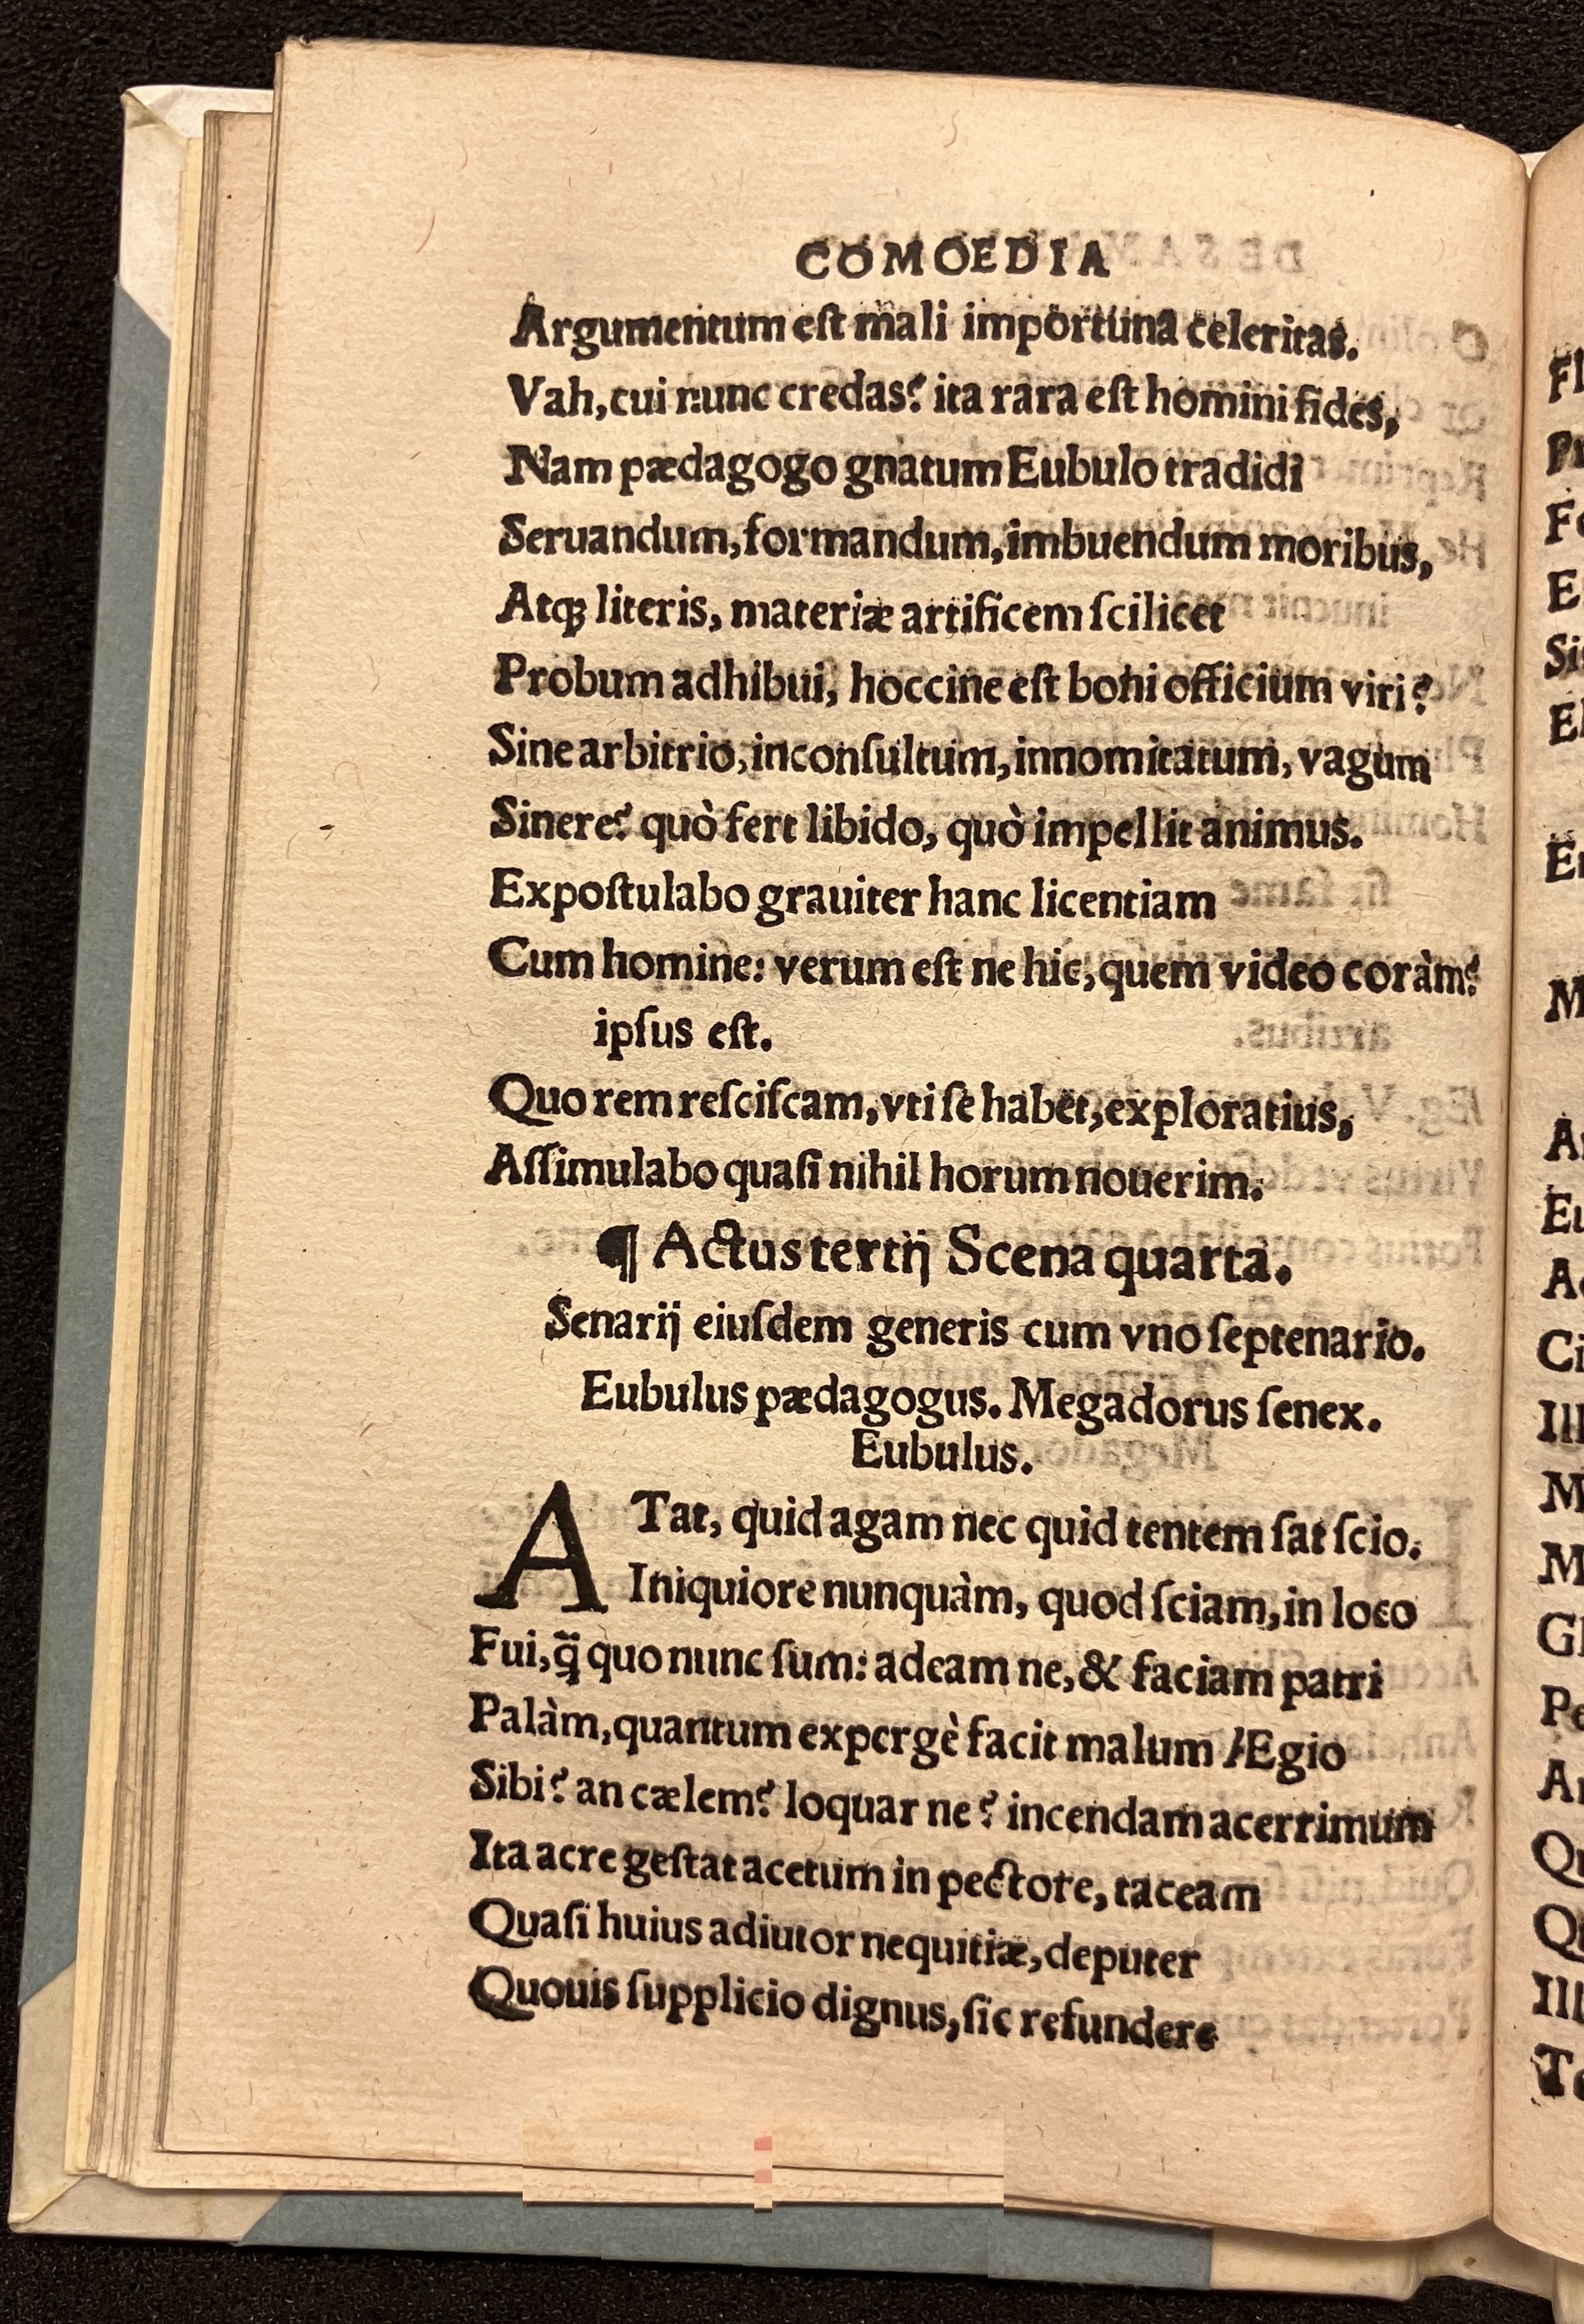 COMOEDIA
Argumentum eſt mali importuna celeritas.
Vah, cui nunc credas? ita rara eſt homini fides,
Nam pædagogo gnatum Eubulo tradidi
Seruandum, formandum, imbuendum moribus,
Atqꝫ literis, materiæ artificem ſcilicet
Probum adhibui, hoccine eſt boni officium viri?
Sine arbitrio, inconſultum, innomitatum, vagum
Sinere? quò fert libido, quò impellit animus.
Expoſtulabo grauiter hanc licentiam
Cum homine: verum eſt ne hic, quem video coràm?
ipſus eſt.
Quo rem reſciſcam, vti ſe habet, exploratius,
Aſſimulabo quaſi nihil horum nouerim.
¶ Actus tertij Scena quarta.
Senarij eiuſdem generis cum vno ſeptenario.
Eubulus pædagogus. Megadorus ſenex.
Eubulus.
ATat, quid agam nec quid tentem ſat ſcio.
Iniquiore nunquàm, quod ſciam, in loco
Fui, q̃ quo nunc ſum: adeam ne, & faciam patri
Palàm, quantum expergè facit malum Ægio
Sibi? an cælem? loquar ne? incendam acerrimum
Ita acre geſtat acetum in pectore, taceam
Quaſi huius adiutor nequitiæ, deputer
Quouis ſupplicio dignus, ſic refundere
Fl
Pr
Fo
E
Si
El
Er
M
A
Eu
Ac
Ci
Ill
M
M
Gl
Pe
Ar
Qu
Qu
Ill
To